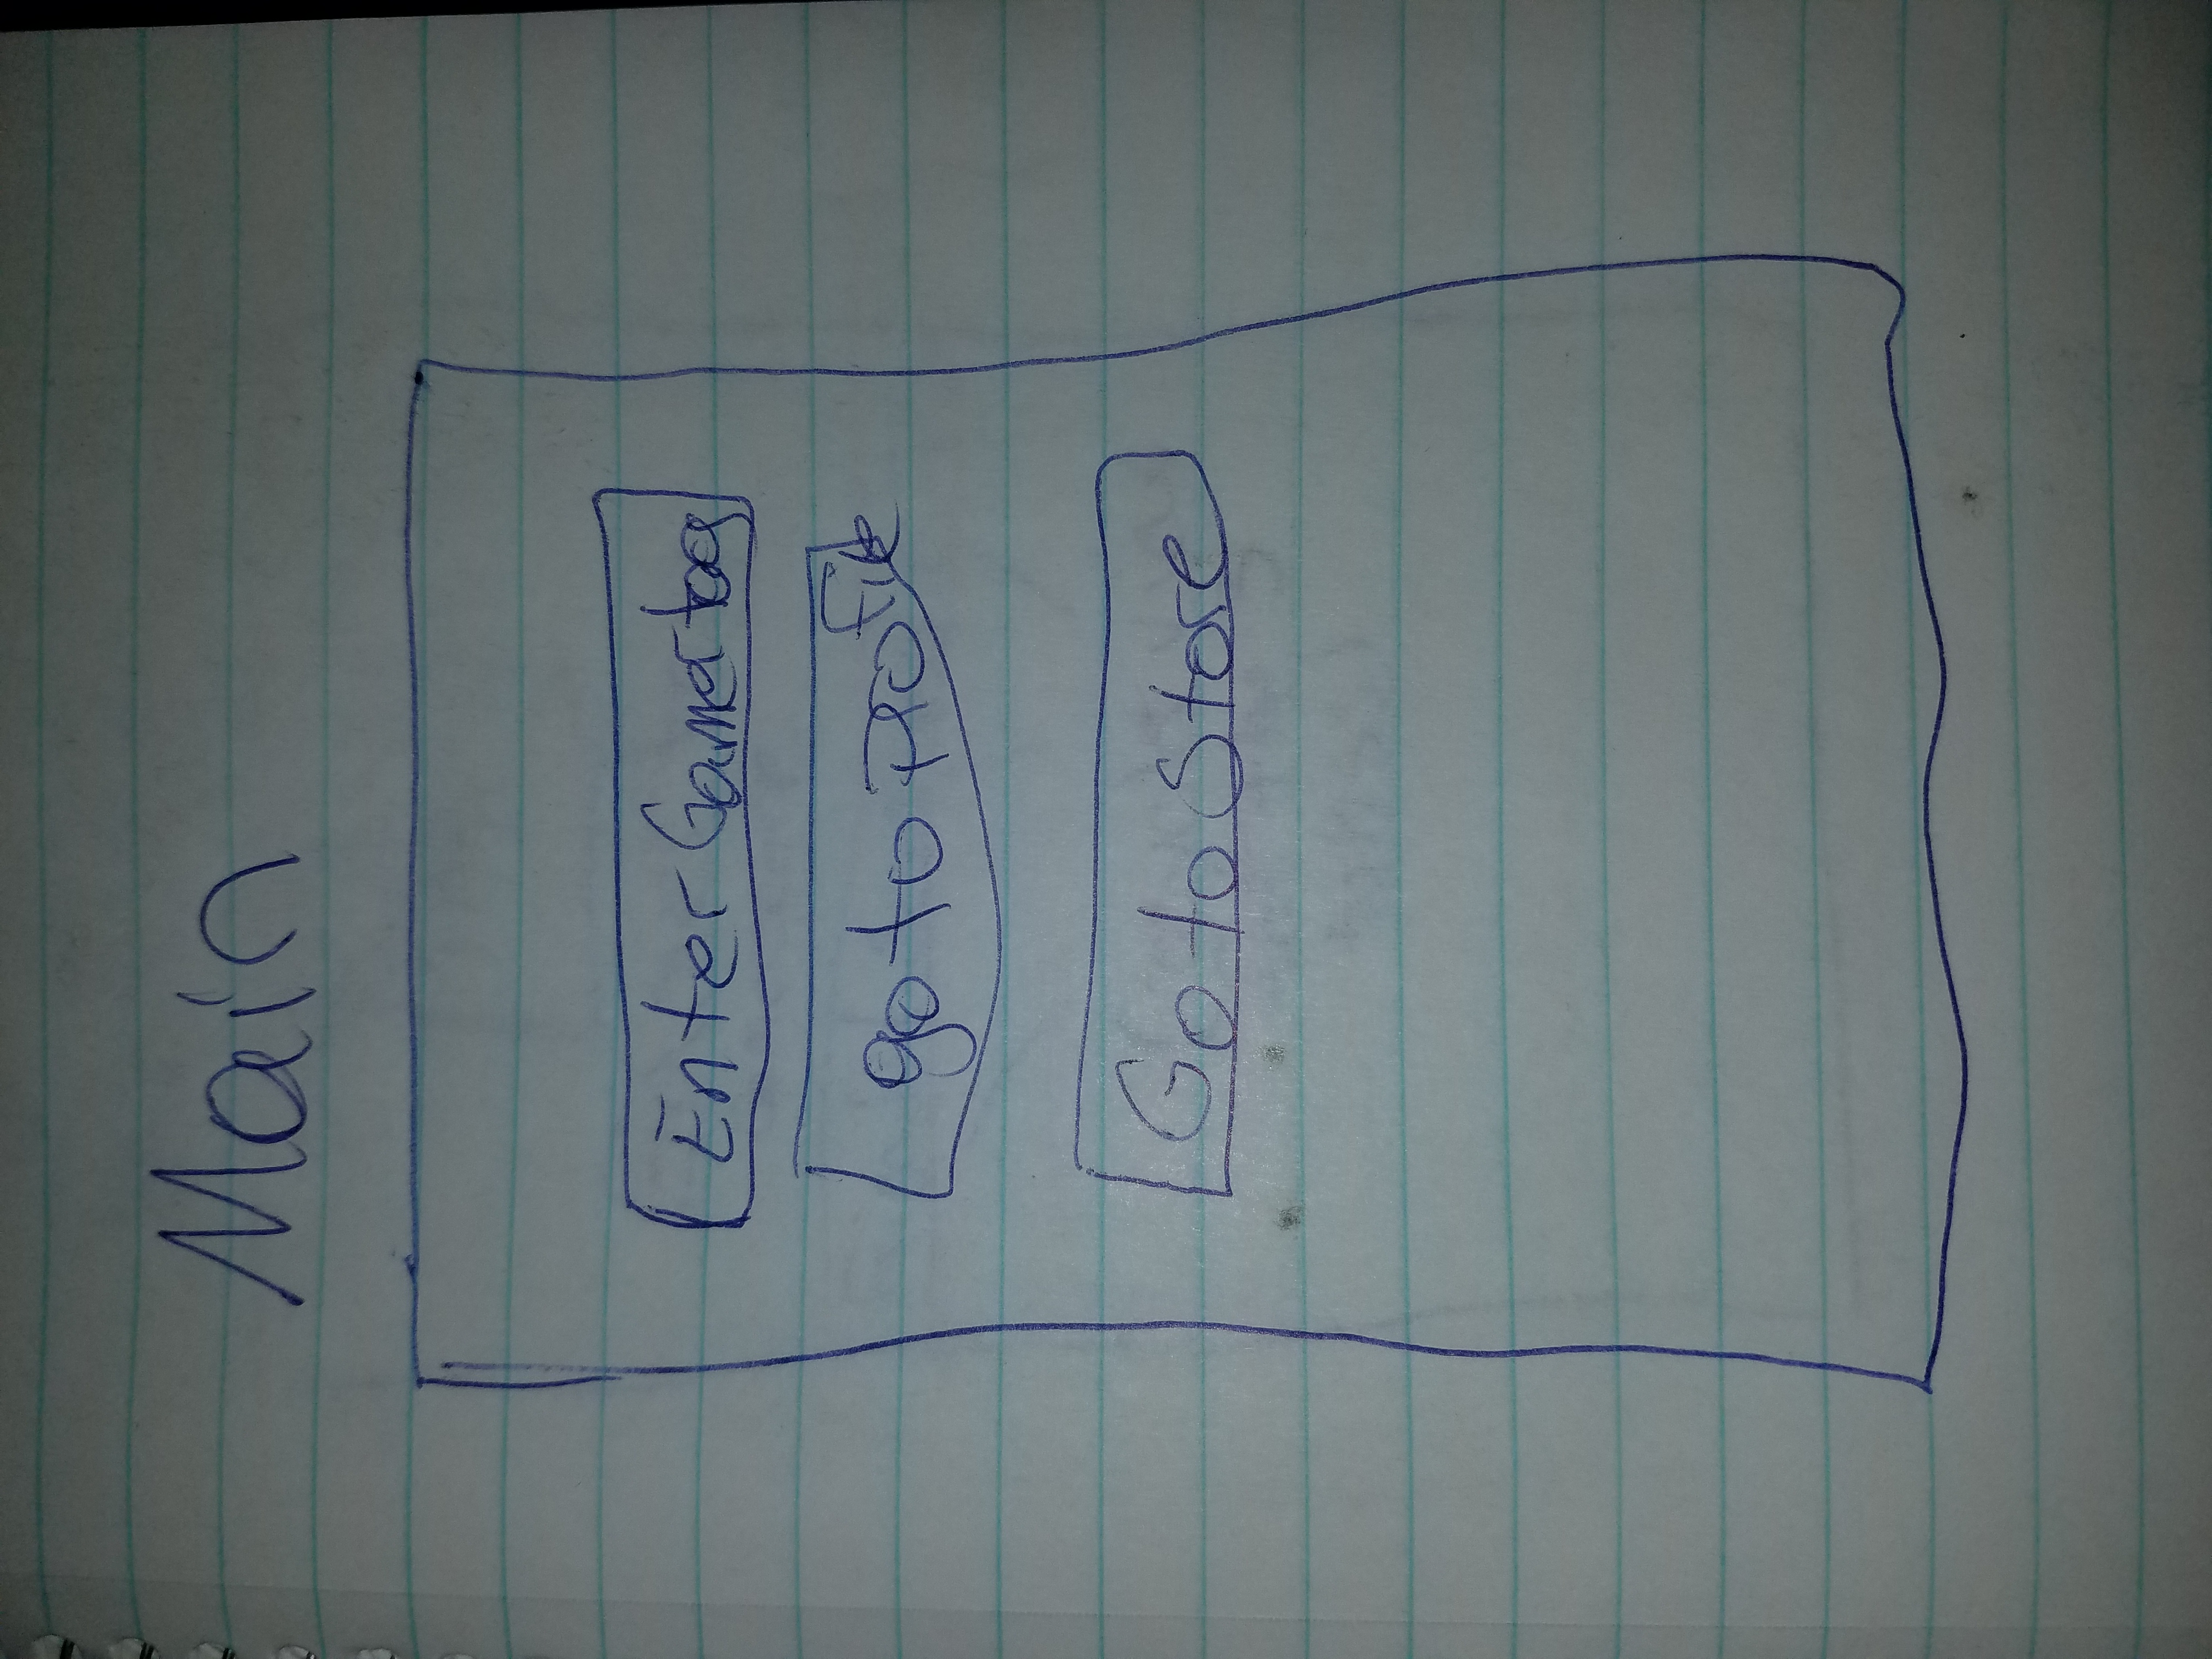 Main
Enter Gamertag
go to profile
Go to Store